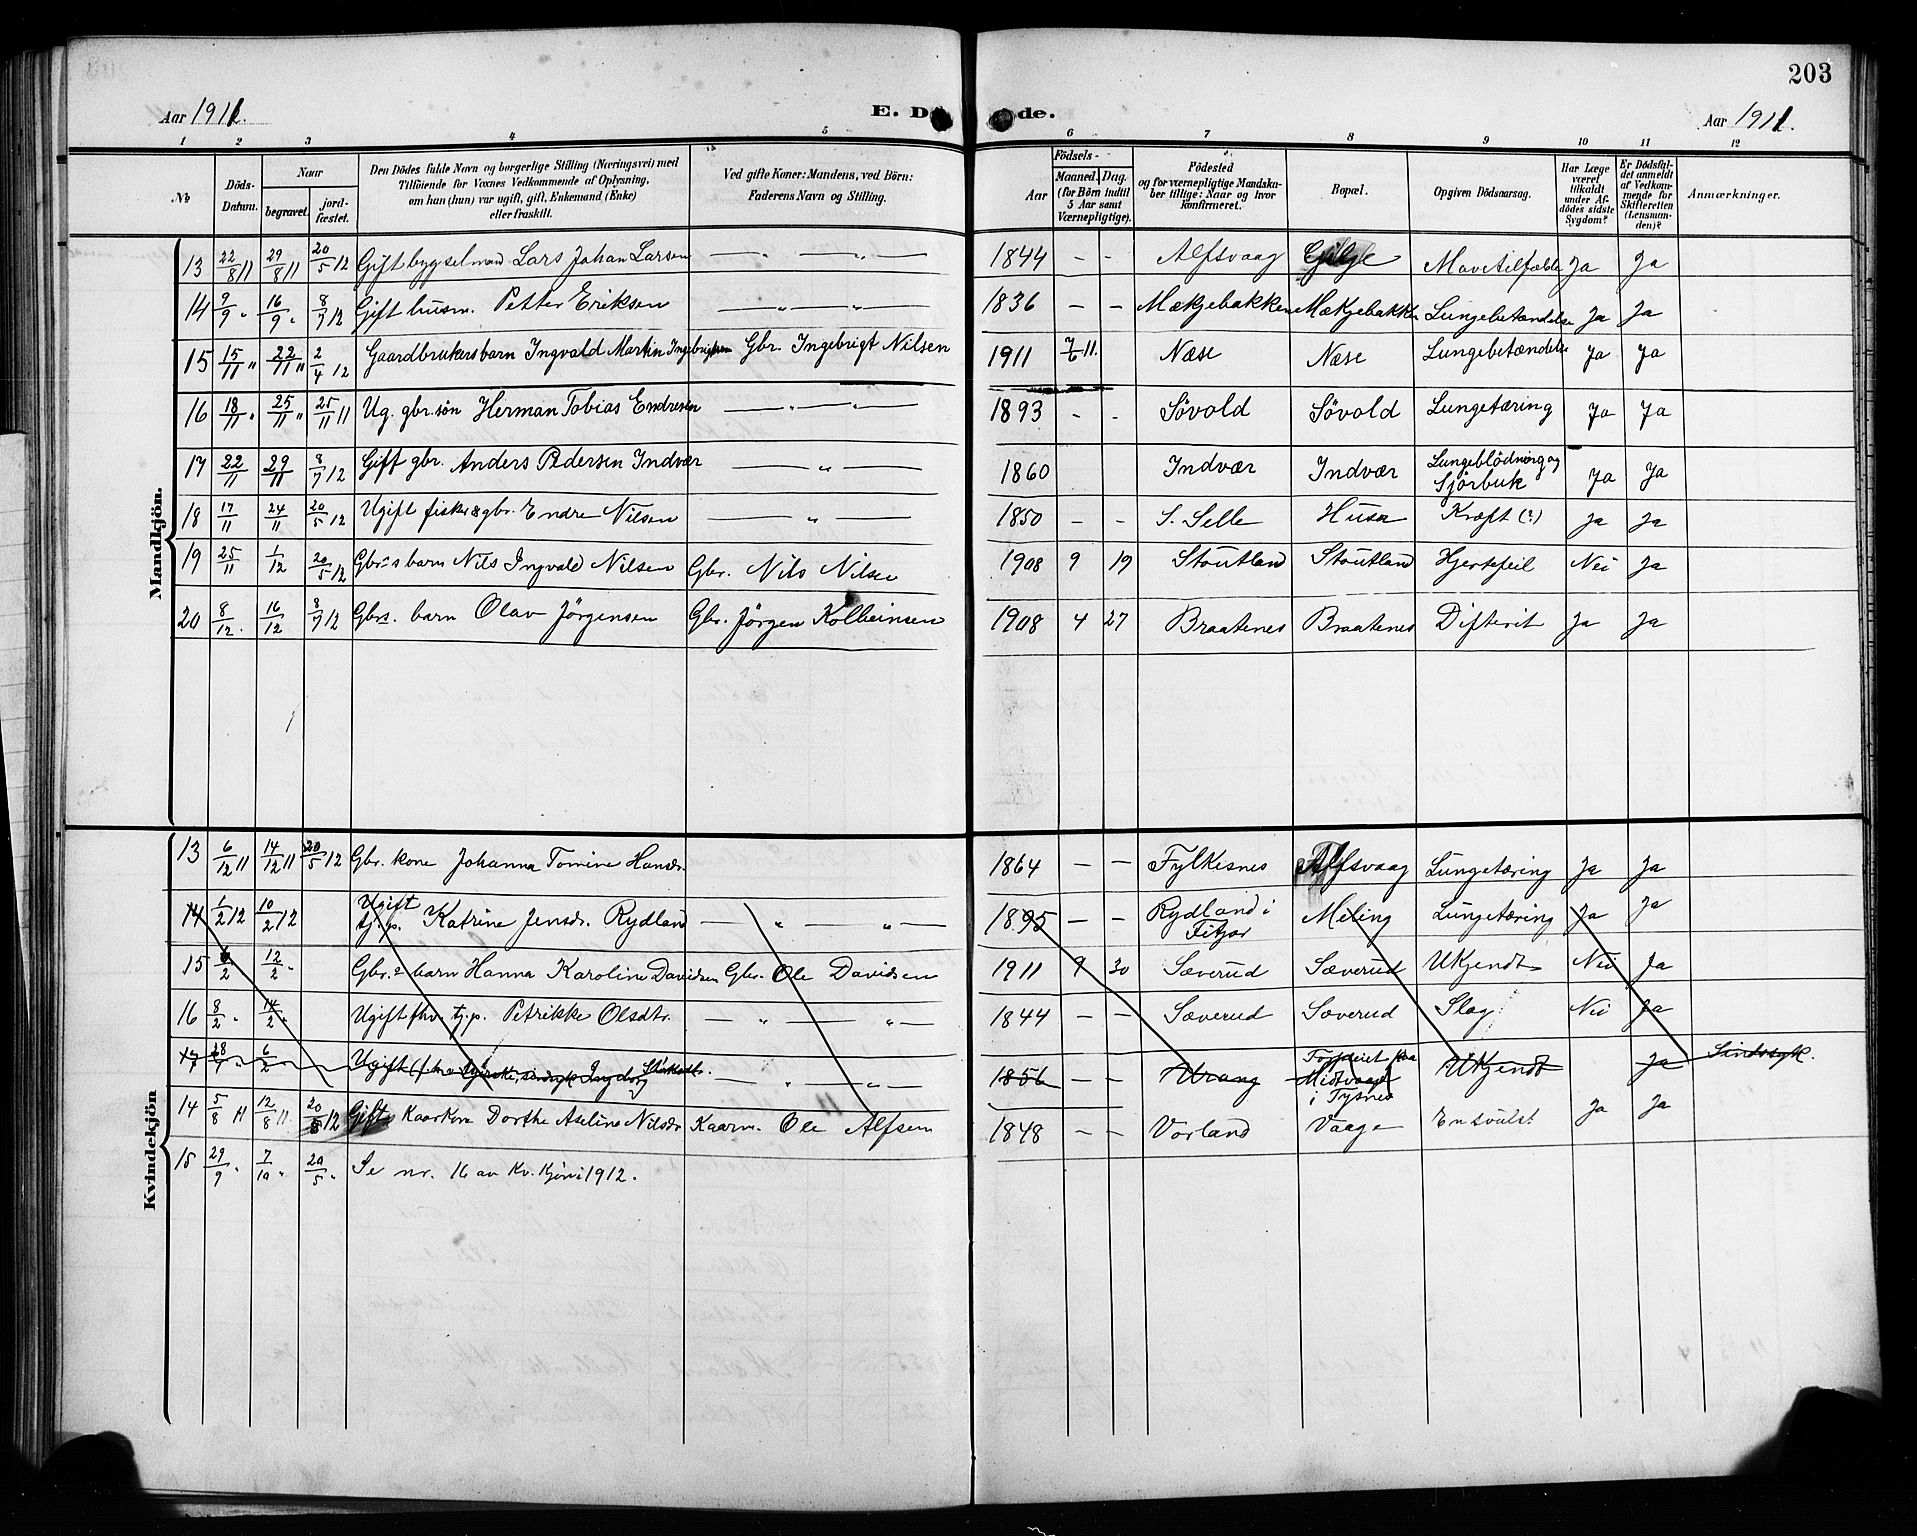 203
Aar 1911.
E. Döde.
Aar 1911.
1 2 3 4 5 6 7 8 9 10 11 12
No
Döds-Datum.
Naar
begravet.
jord-fæstet.
Den Dödes fulde Navn og borgerlige Stilling (Næringsvei) med
Tilföiende for Voxnes Vedkommende af Oplysning,
om han (hun) var ugift, gift, Enkemand (Enke)
eller fraskilt.
Ved gifte Koner: Mandens, ved Börn:
Faderens Navn og Stilling.
Födsels-
Aar
Maaned. Dag.
(for Börn indtil
5 Aar samt
Værnepligtige).
Födested
og for værnepligtige Mandska-
ber tillige: Naar og hvor
konfirmeret.
Bopæl.
Opgiven Dödsaarsag.
Har Læge
været
tilkaldt
under Af-
dödes sidste
Sygdom?
Er Dödsfal-
det anmeldt
af Vedkom-
mende for
Skifteretten
(Lensman-
den)?
Anmærkninger.
Mandkjön.
13 22/8 11 29/8 11 20/5 12 Gift bygselmand Lars Johan Larsen — " — " — 1844 - - Alfsvaag Gilje Mavetilfælde Ja Ja
14 9/9 " 16/9 " 8/7 12 Gift husm. Petter Eriksen — " — " — 1836 - - Mækjebakken Mækjebakken Lungebetændelse Ja Ja
15 15/11 " 22/11 " 2/4 12 Gaardbrukersbarn Ingvald Martin Ingebrigtsen Gbr. Ingebrigt Nilsen 1911 7/6 11. Næse Næse Lungebetændelse Ja Ja
16 18/11 " 25/11 " 25/11 11 Ug. gbr. sön Herman Tobias Endresen — " — " — 1893 - - Sövold Sövold Lungetæring Ja Ja
17 22/11 29/11 8/7 12 Gift gbr. Anders Pedersen Indvær — " — 1860 Indvær Indvær Lungeblödning og
Sjörbuk Ja Ja
18 17/11 24/11 20/5 12 Ugift fisker & gbr. Endre Nilsen — " — 1850 - - S. Selle Husa Kræft (?) Ja Ja
19 25/11 1/12 20/5 12 Gbr.s barn Nils Ingvald Nilsen Gbr. Nils Nilsen 1908 9 19 Stoutland Stoutland Hjertefeil Nei Ja
20 8/12. 16/12 8/7 12 Gbrs. barn Olav Jörgensen Gbr. Jörgen Kolbeinsen 1908 4 27 Braatenes Braatenes Difterit Ja Ja
Kvindekjön
13 6/12 11 14/12 11 20/5 12 Gbr. kone Johanna Tomine Hansdr. 1864 - - Fylkesnes Alfsvaag Lungetæring Ja Ja
14 1/2 12 10/2 12 Ugift
tj. p. Katrine Jensdr. Rydland — " — " — 1895 - - Rydland i
Fitjar Meling Lungetæring Ja Ja
15 6/2 12/2 " Gbr.s barn Hanna Karoline Davidsen Gbr. Ole Davidsen 1911 9 30 Sæverud Sæverud Ukjendt Nei Ja
16 8/2 " 14/2 " Ugift fhv. tj. p. Petrikke Olsdtr. — " — " — 1844 - - Sæverud Sæverud Slag Nei Ja
17 28/1 6/2 Ugift Ingborg — " — " — 1856 - - Urang Forpleiet paa
Midtvaage
i Tysnes Ukjendt Ja Sindssyk.
14 5/8 11 12/8 11 20/5 12 Gift Kaarkone Dorthe Aseline Nilsdr. Kaarm. Ole Alfsen 1848 - - Vorland Vaage En svulst Ja Ja
15 29/9 " 7/10 " 20/5 " Se nr. 16 av Kv. kjön i 1912.